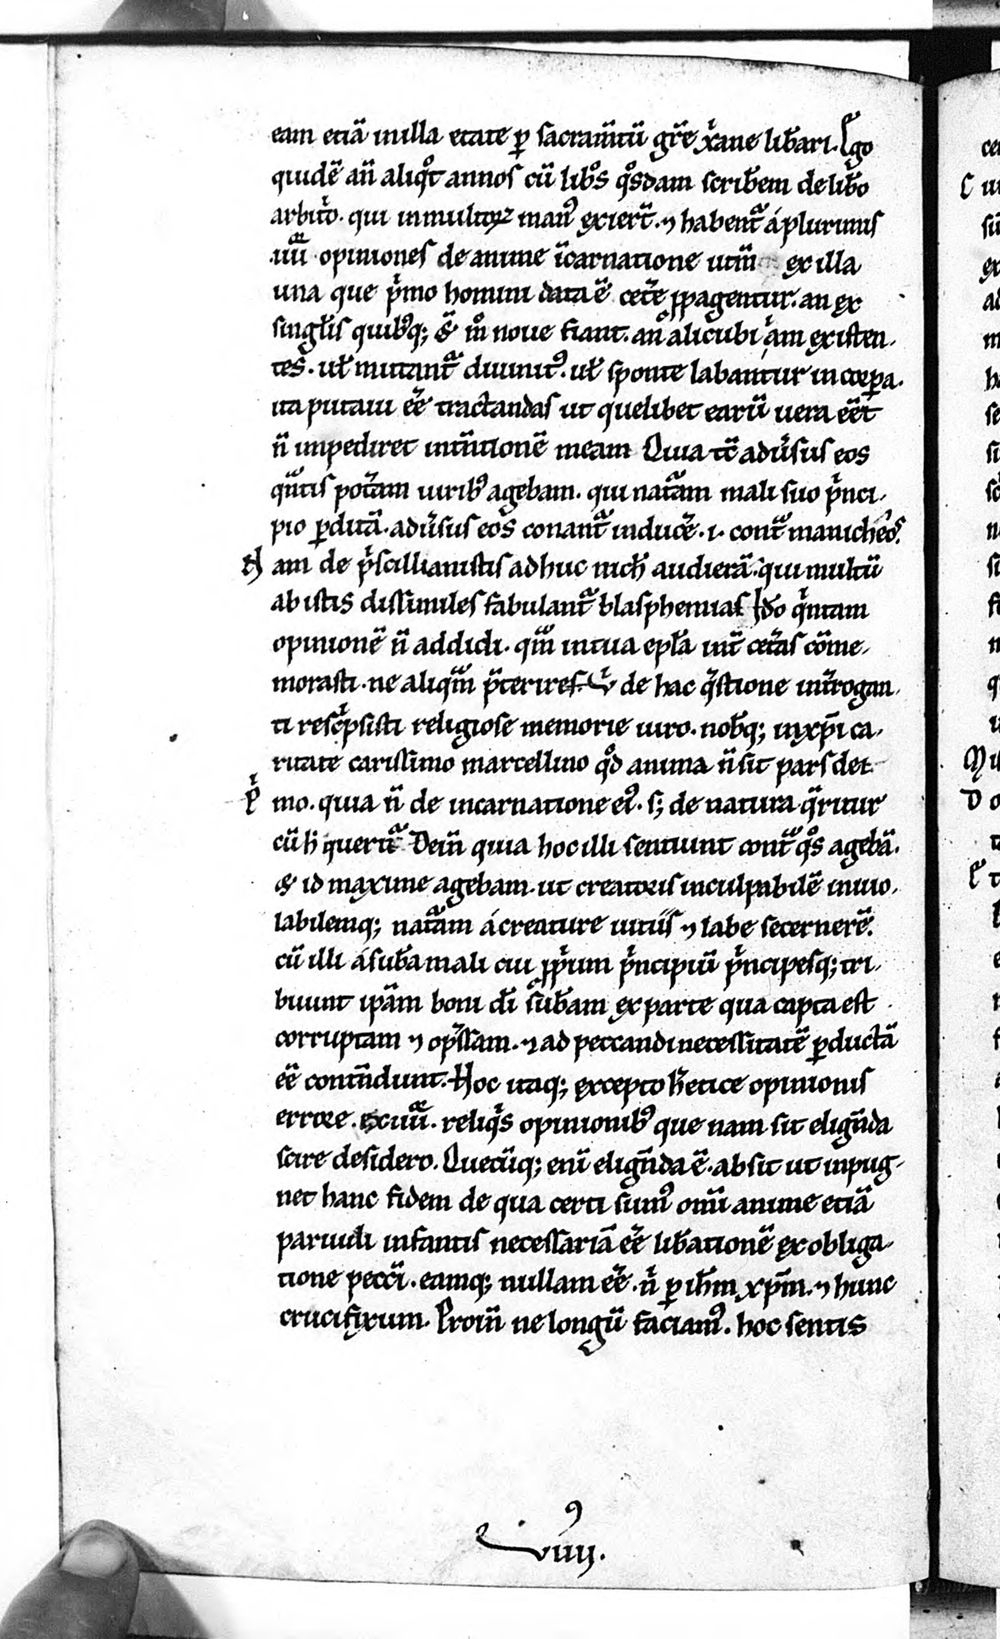 eam etiā in illa etate ꝑ sacram̄tū gr̄e xp̄iane lib̄ari. Ego
quidē an̄ aliqͦt annos cū lib̄os qͦsdam scrib̄em de lib̄o
arbitͥo. qui in multoꝝ man⁹ exier̄t. ⁊ habent᷑ a plurimis
.iiii. opiniones de anime īcarnatione utrū ex illa
una que pͥmo homini data ē cet̄e ꝓpagentur. an ex
singul̄is quibusq; & m̊ noue fiant. an alicubi iam existen-
tes. ul̓ mittant᷑ diuinit⁹. ul̓ sponte labantur in corpa.
ita putaui eē tractandas ut quelibet earū uera eēt
n̄ impediret int̄tionē meam Quia tc̄ adu̓sus eos
qᵃntis potᵃm uirib⁹ agebam. qui natᵃm mali suo pͥnci-
pio p̱ditā. adu̓sus eos conant᷑ induce̓. .i. contᵃ manicheos.
Nam de pͥscillianistis adhuc nich̓ audierā. qui multū
ab istis dissimiles fabulant᷑ blasphemias Ido̓ qͥntam
opinionē n̄ addidi. qᵃm in tua epl̓a int̓ cet̓as cōme-
morasti. ne aliqᵃm p̄terires. Vͥ de hac qͣstione int̓rogan-
ti rescͥpsisti religiose memorie uiro. nob̓q; in xp̄i ca-
ritate carissimo marcellino qͦd anima n̄ sit pars dei.
Pͥmo. quia n̄ de incarnatione ei⁹. s; de natura qͣritur
cū h̓ querit᷑ Dein̄ quia hoc illi sentiunt contᵃ qͦs agebā.
& id maxime agebam. ut creatoris inculpabilē inuio-
labilemq; natᵃm a creature uitiis ⁊ labe secernerē.
cū illi a sub̓a mali cui ꝓpͥum pͥncipiū pͥncipesq; tri-
buunt ip̄am boni dī sub̓am ex parte qua capta est
corruptam ⁊ op̄ssam. ⁊ ad peccandi necessitatē p̱ductā
eē contn̄dunt. Hoc itaq; excepto h̓etice opinionis
errore. ex iiii. reliqͥs opinionib⁹ que nam sit elign̄da
scire desidero. Quecūq; eni elign̄da ē. absit ut inpug-
net hanc fidem de qua certi sum⁹ omī anime etiā
paruuli infantis necessariā eē lib̓ationē ex obliga-
tione pecc̄i. eamq; nullam eē. nͥ ꝑ ih̄m xp̄m. ⁊ hunc
crucifixum. Proin̄ ne longū faciam⁹. hoc sentis
viiij⁹.